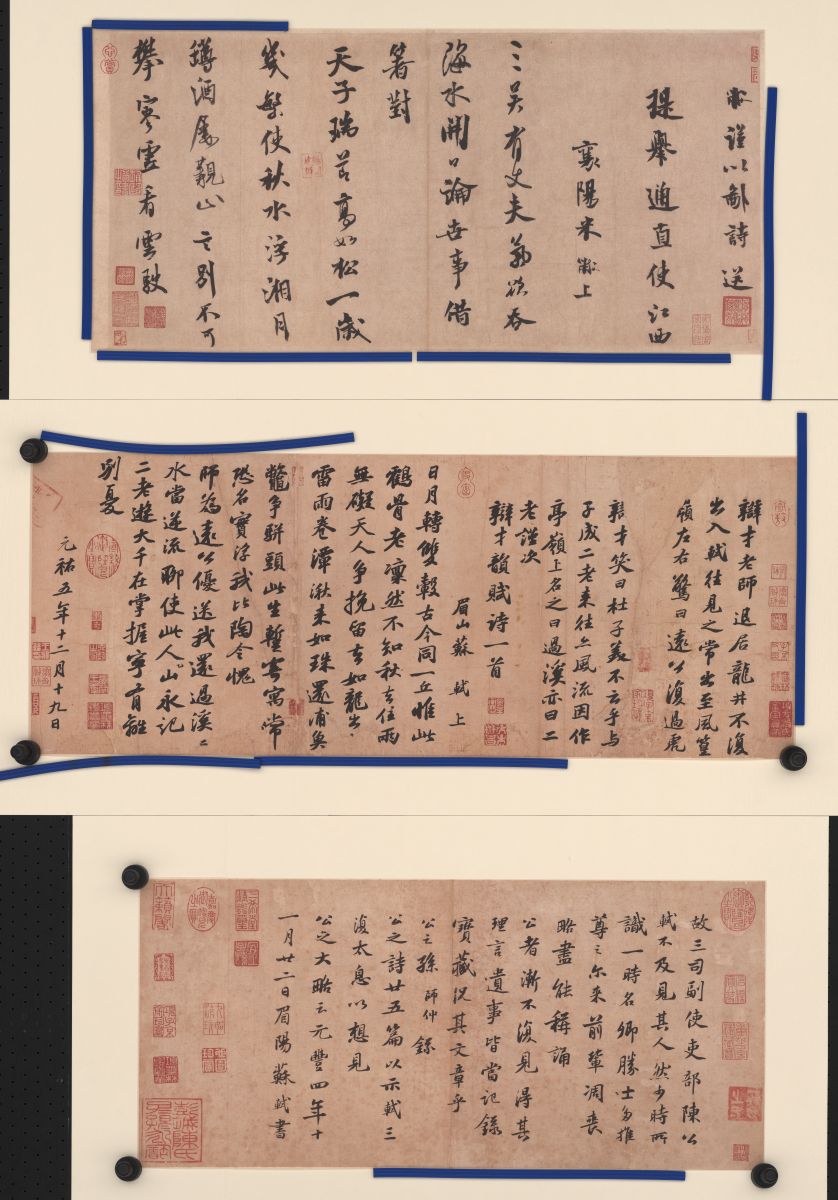 黻謹以鄙詩送
提舉通直使江西
襄陽米黻上
三吳有丈夫氣欲吞
海水開口論世事借
箸對
天子瑞節高如松一歲
幾繁使秋水浮湘月
罇酒屬親山言別不可
攀寒雲看雲駛
辯才老師退居龍井不復
出入軾往見之常出至風篁
嶺左右驚曰遠公復過虎
溪矣
辯才笑曰杜子美不云乎與
子成二老來往亦風流因作
亭嶺上名之曰過溪亦曰二
老謹次
辯才韻賦詩一首
眉山蘇軾上
日月轉雙轂古今同一丘惟此
鶴骨老凜然不知秋去住兩
無礙天人爭挽留去如龍出山
雷雨卷潭湫來如珠還浦魚
鼈爭駢頭此生暫寄寓常
恐名實浮我比陶令愧
師為遠公優送我還過溪溪
水當逆流聊使此人山永記
二老遊大千在掌握寧有離
別憂
元祐五年十二月十九日
故三司副使吏部陳公
軾不及見其人然少時所
識一時名卿勝士多推
尊之尔來前輩凋喪
略盡能稱誦
公者漸不復見得其
理言遺事皆當記錄
寶藏況其文章乎
公之孫師仲錄
公之詩廿五篇以示軾三
復太息以想見
公之大略云元豐四年十
一月廿二日眉陽蘇軾書